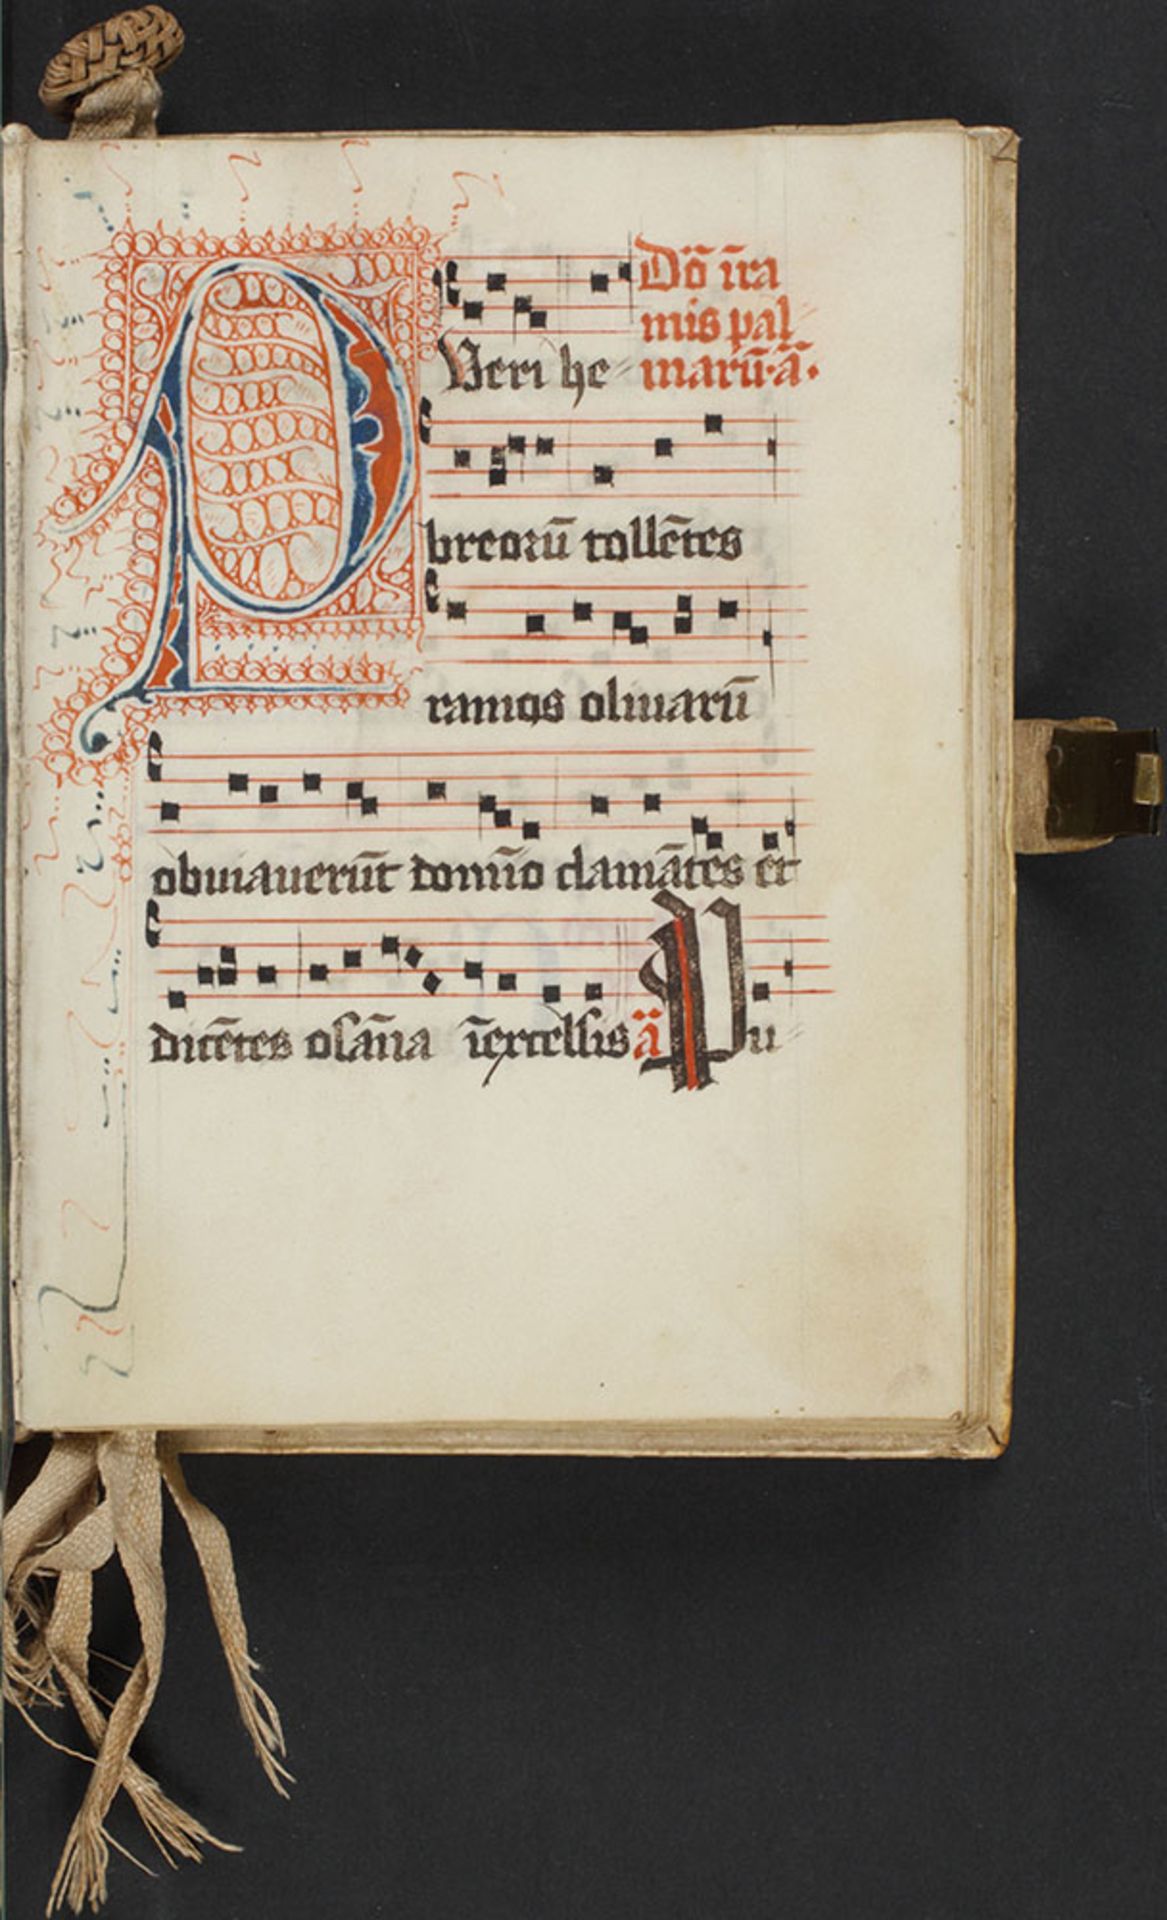 Dō ī ra
mis pal
PVeri he marū. ā.
breorū tollētes
ramos oliuarū
obuiauerūt domīo clamātes et
dicētes osāna ī excelsis ā Pu